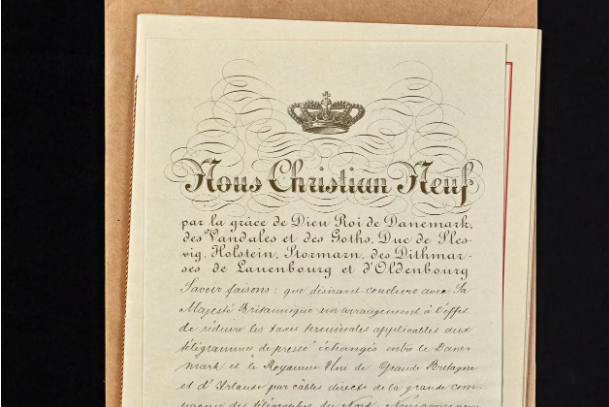 Nous Christian Neuf
par la grâce de Dieu Roi de Danemark,
des Vandales et des Goths, Duc de Sles-
vig, Holstein, Stormarn, des Dithmar-
ses de Lauenbourg et d'Oldenbourg
Savoir faisons: que désirant conclure avec Sa
Majesté Britannique un arrangement à l'effet
de réduire les taxes terminales applicables aux
télégrammes de presse échangés entre le Dane-
mark et le Royaume Uni de Grande Bretagne
et d'Irlande par câbles directs de la grande com-
pagnie des télégraphes du Nord, Nous avons